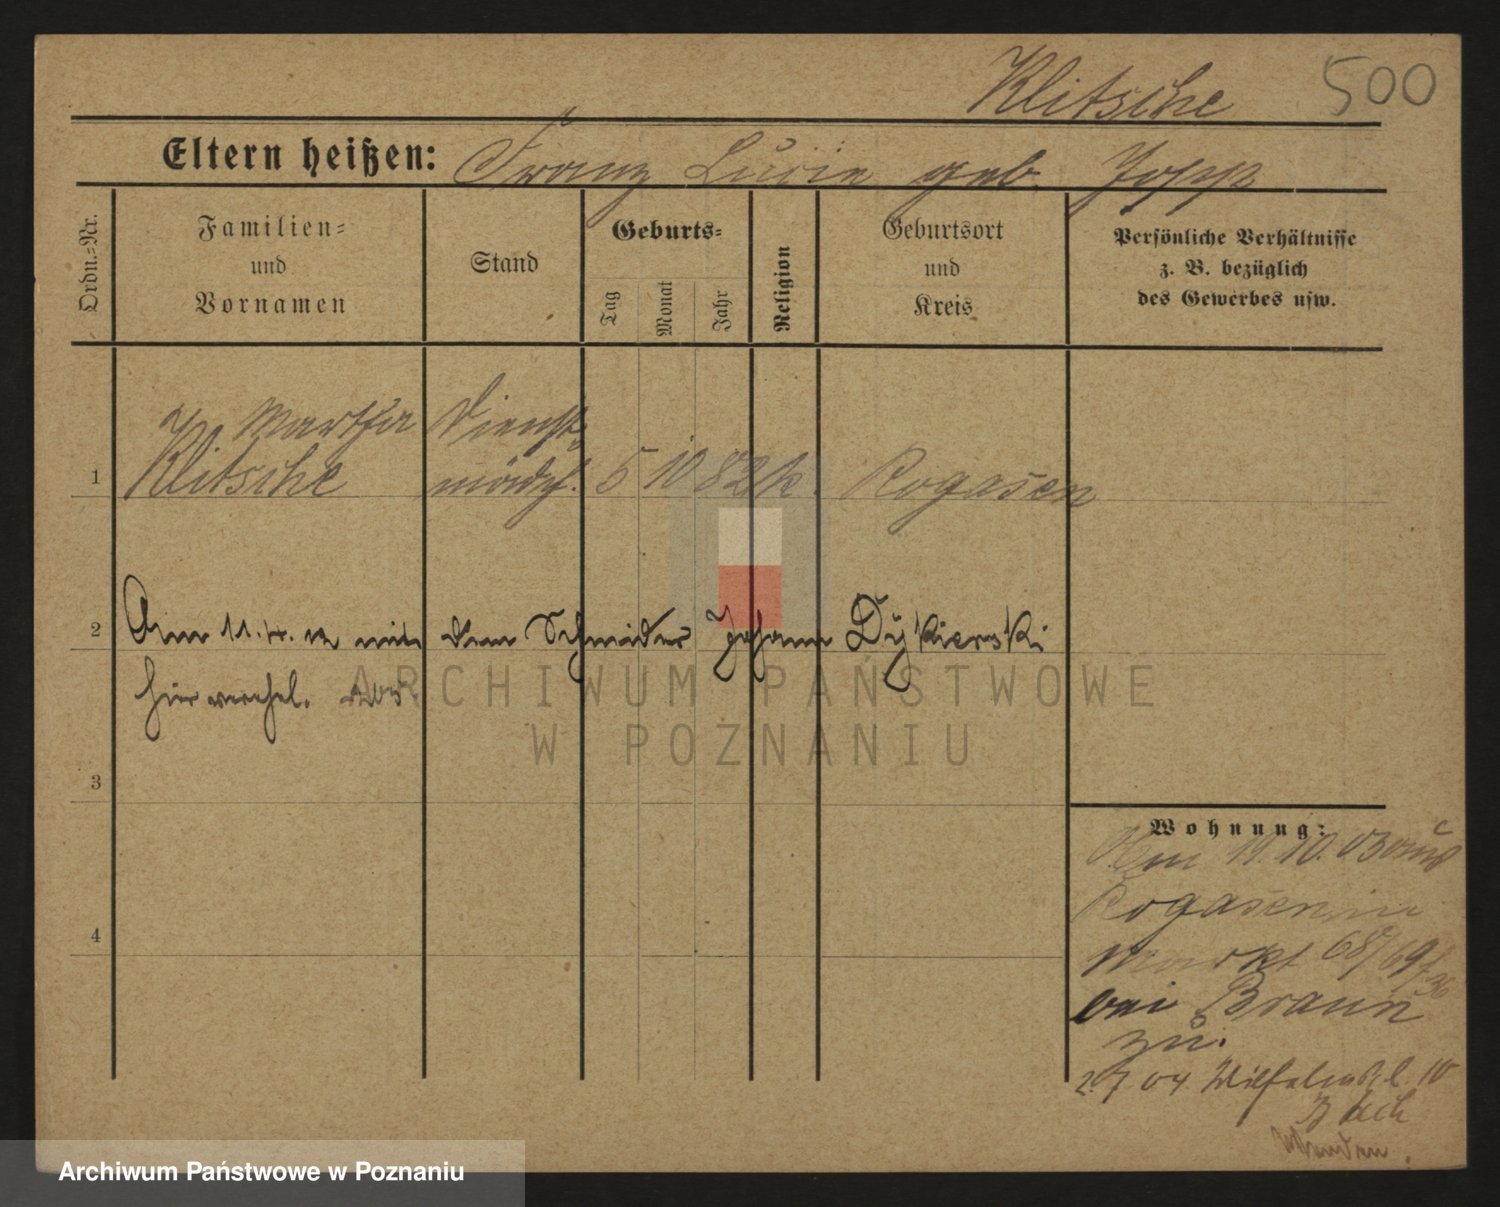 Klitsche 500
Eltern heißen: Franz Lucie geb. Jopp
Ordn.-Nr.
Familien-
und
Vornamen
Stand
Geburts-
Tag
Monat
Jahr
Religion
Geburtsort
und
Kreis
Persönliche Verhältnisse
z. B. bezüglich
des Gewerbes usw.
Martha Dienst-
1 Klitsche mädch. 5 10 82 k. Rogasen
2 Am 11.4. mit dem Schneider Johann Dykierski
hier verehel.
3
4
Wohnung:
Am 11.10.03 aus
Rogasen in
Markt 68/69
bei Braun
zu.
2.7 04 Wilhelm 10
ARCHIWUM PAŃSTWOWE
W POZNANIU
Archiwum Państwowe w Poznaniu